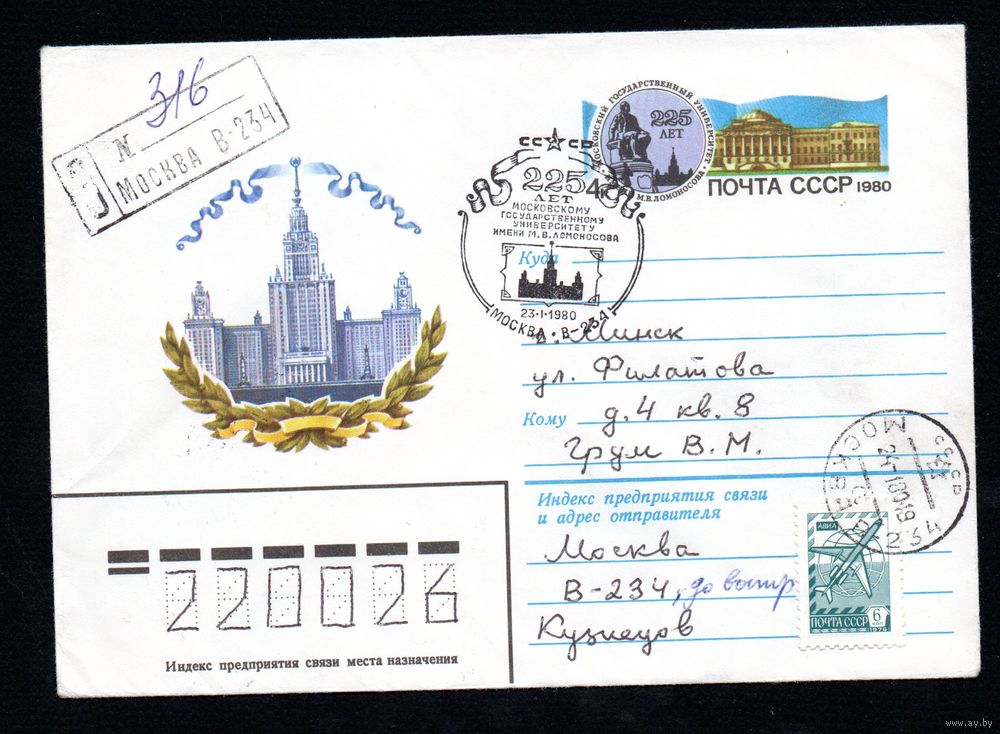 316
З
N
МОСКВА В-234
МОСКОВСКИЙ ГОСУДАРСТВЕННЫЙ УНИВЕРСИТЕТ
М.В.ЛОМОНОСОВА
225
ЛЕТ
ПОЧТА СССР 1980
СССР
225
ЛЕТ
МОСКОВСКОМУ
ГОСУДАРСТВЕННОМУ
УНИВЕРСИТЕТУ
ИМЕНИ М.В.ЛОМОНОСОВА
23·I·1980
МОСКВА·В-234
Куда
г. Минск
ул. Филатова
Кому д. 4 кв. 8
Грум В. М.
СССР
МОСКВА
234
Индекс предприятия связи
и адрес отправителя
Москва
В-234, до востр
Кузнецов
АВИА
6
КОП
ПОЧТА СССР
1976
220026
Индекс предприятия связи места назначения
www.ay.by